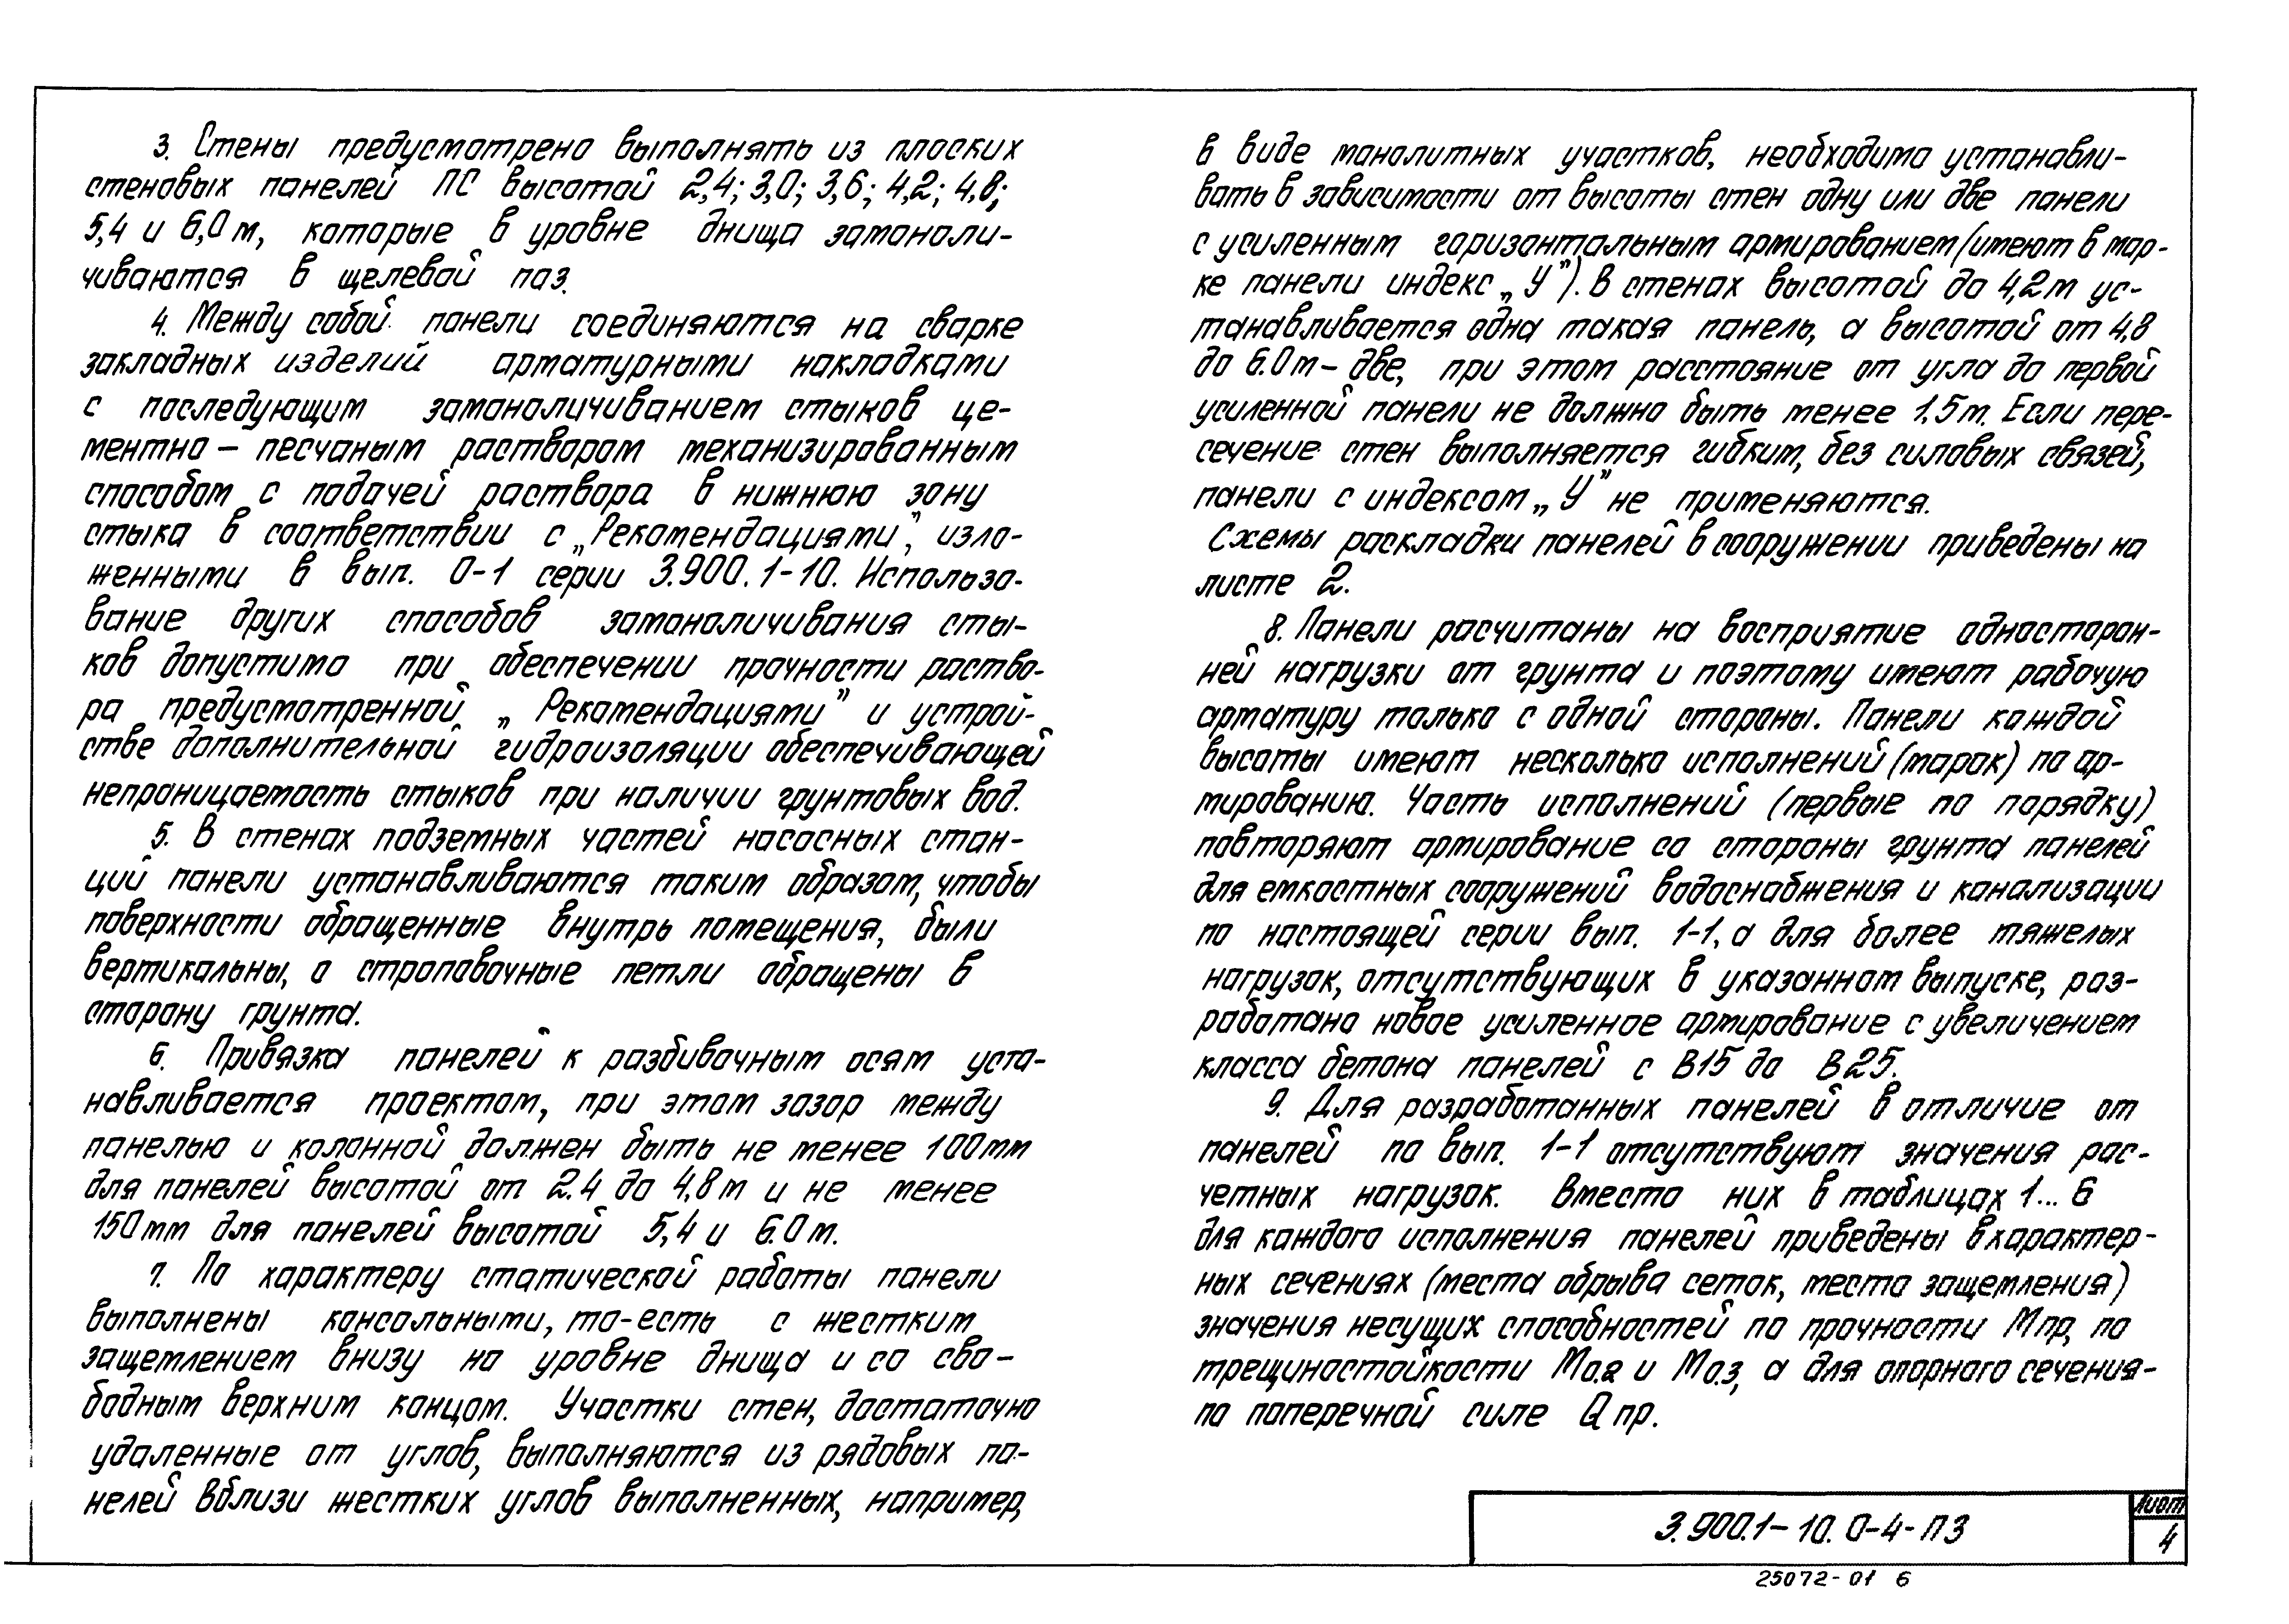 3. Стены предусмотрено выполнять из плоских
стеновых панелей ПС высотой 2,4; 3,0; 3,6; 4,2; 4,8;
5,4 и 6,0 м, которые в уровне днища замоноли-
чиваются в щелевой паз.
4. Между собой панели соединяются на сварке
закладных изделий арматурными накладками
с последующим замоноличиванием стыков це-
ментно – песчаным раствором механизированным
способом с подачей раствора в нижнюю зону
стыка в соответствии с „Рекомендациями", изло-
женными в вып. 0-1 серии 3.900.1-10. Использо-
вание других способов замоноличивания сты-
ков допустимо при обеспечении прочности раство-
ра предусмотренной „Рекомендациями" и устрой-
стве дополнительной гидроизоляции обеспечивающей
непроницаемость стыков при наличии грунтовых вод.
5. В стенах подземных частей насосных стан-
ций панели устанавливаются таким образом, чтобы
поверхности обращенные внутрь помещения, были
вертикальны, а строповочные петли обращены в
сторону грунта.
6. Привязка панелей к разбивочным осям уста-
навливается проектом, при этом зазор между
панелью и колонной должен быть не менее 100мм
для панелей высотой от 2.4 до 4,8м и не менее
150мм для панелей высотой 5,4 и 6.0 м.
7. По характеру статической работы панели
выполнены консольными, то-есть с жестким
защемлением внизу на уровне днища и со сво-
бодным верхним концом. Участки стен, достаточно
удаленные от углов, выполняются из рядовых па-
нелей вблизи жестких углов выполненных, например,
в виде монолитных участков, необходимо устанавли-
вать в зависимости от высоты стен одну или две панели
с усиленным горизонтальным армированием (имеют в мар-
ке панели индекс „У"). В стенах высотой до 4,2м ус-
танавливается одна такая панель, а высотой от 4,8
до 6.0м – две, при этом расстояние от угла до первой
усиленной панели не должно быть менее 1,5м. Если пере-
сечение стен выполняется гибким, без силовых связей,
панели с индексом „У" не применяются.
Схемы раскладки панелей в сооружении приведены на
листе 2.
8. Панели расчитаны на восприятие односторон-
ней нагрузки от грунта и поэтому имеют рабочую
арматуру только с одной стороны. Панели каждой
высоты имеют несколько исполнений (марок) по ар-
мированию. Часть исполнений (первые по порядку)
повторяют армирование со стороны грунта панелей
для емкостных сооружений водоснабжения и канализации
по настоящей серии вып. 1-1, а для более тяжелых
нагрузок, отсутствующих в указанном выпуске, раз-
работано новое усиленное армирование с увеличением
класса бетона панелей с В15 до В25.
9. Для разработанных панелей в отличие от
панелей по вып. 1-1 отсутствуют значения рас-
четных нагрузок. Вместо них в таблицах 1... 6
для каждого исполнения панелей приведены в характер-
ных сечениях (места обрыва сеток, место защемления)
значения несущих способностей по прочности Мпр, по
трещиностойкости Мо.2 и Мо.3, а для опорного сечения-
по поперечной силе Qпр.
3.900.1-10.0-4-ПЗ
Лист
4
25072-01 6